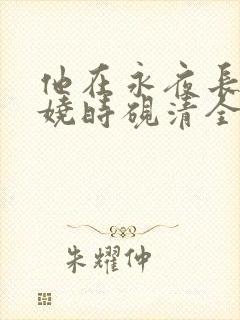 他在永夜長
嬈時硯清全
朱耀仲